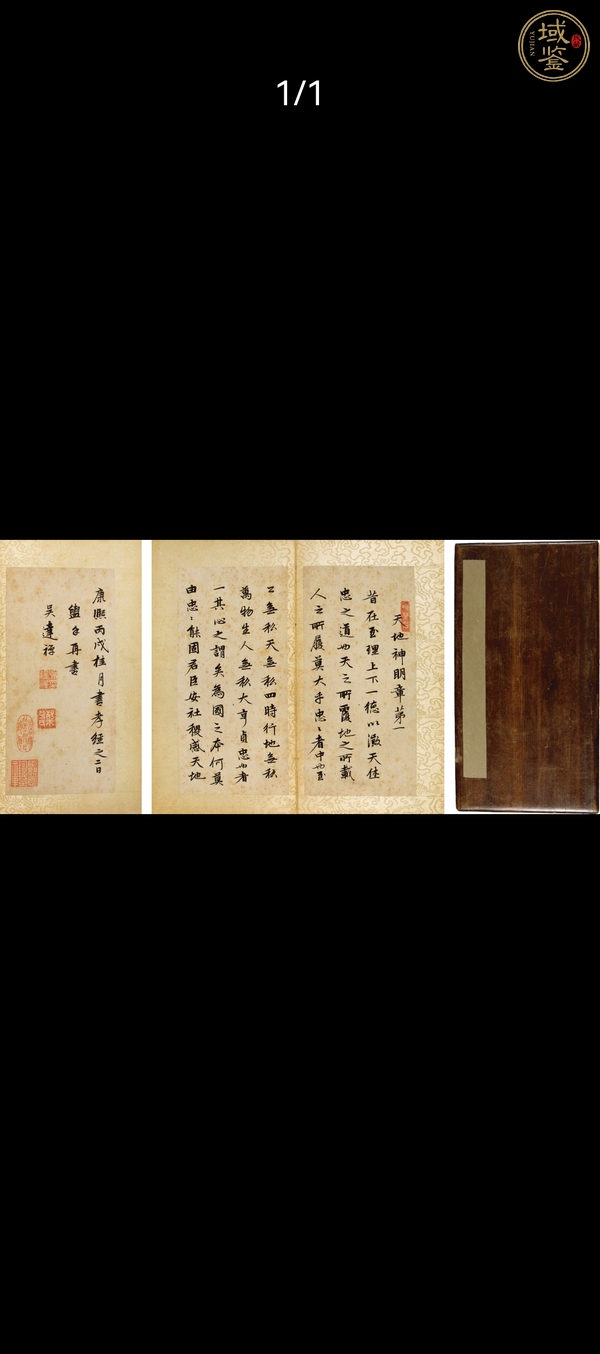 域鉴
YUJIAN
1/1
天地神明章第一
昔在至理上下一德以徵天休
忠之道也天之所覆地之所載
人之所履莫大乎忠〻者中也至
公無私天無私四時行地無私
萬物生人無私大亨貞忠也者
一其心之謂矣為國之本何莫
由忠〻能固君臣安社稷感天地
康熙丙戌桂月書孝經之二日
盥手再書
吳達禮